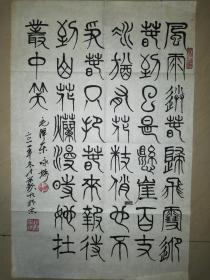 風雨送春歸飛雪迎
春到已是懸崖百丈
冰猶有花枝俏也不
爭春只把春來報待
到山花爛漫時她在
叢中笑
毛澤東 詠梅